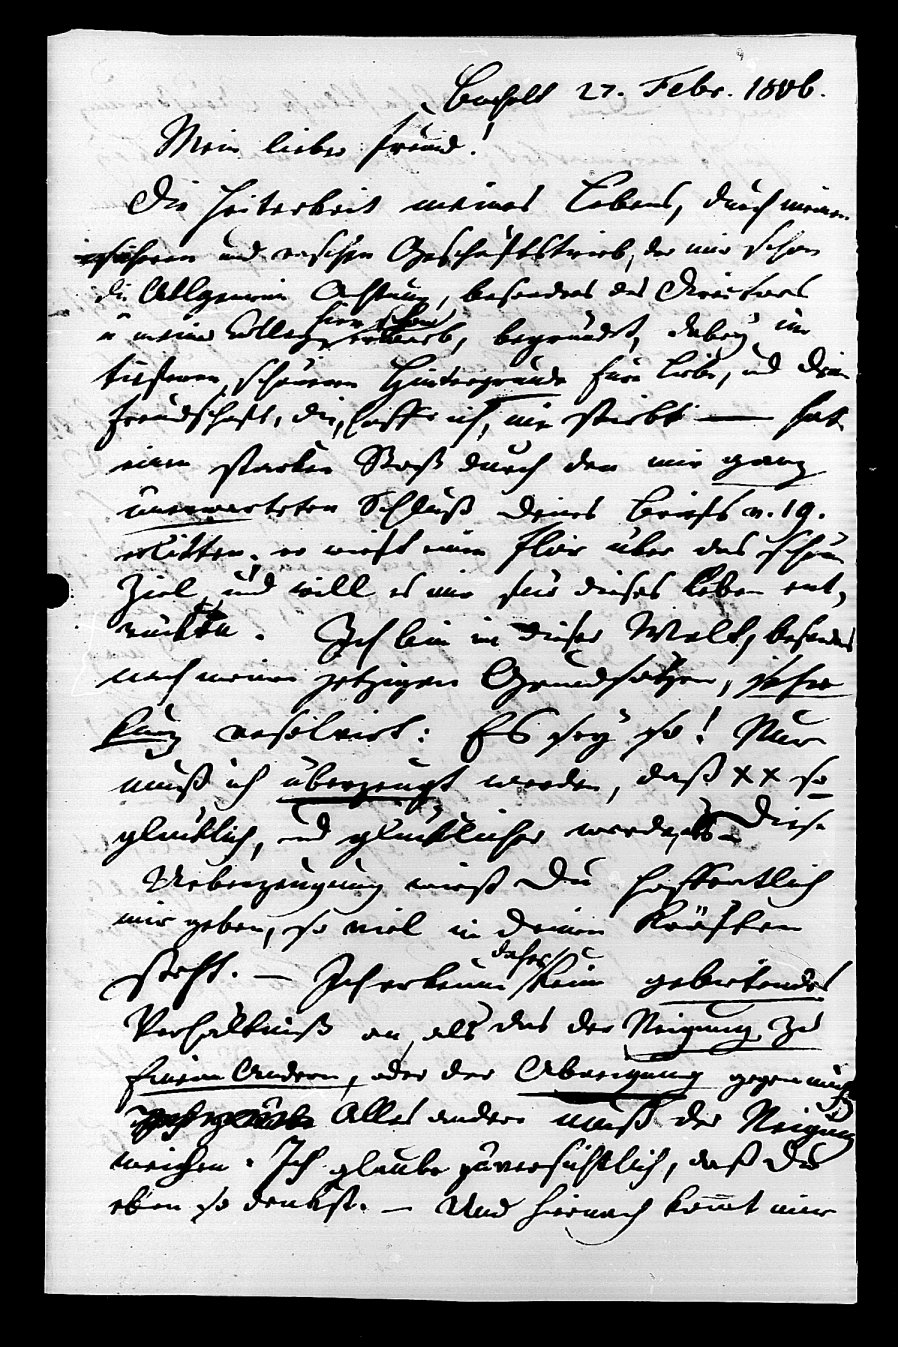 Bocholt 27. Febr. 1806.
Mein lieber Freund!
Die Heiterkeit meines Lebens, durch meinen
und raschen Geschäftstrieb, der mir schon
die Allgemeine Achtung, besonders des Directors
u meiner Collegen hier schon erwarb, begründet, dabey im
tieferen, schöneren Hintergrunde Eure Liebe, und Deine
Freundschaft, die, hoffe ich, nie stirbt — hat
einen starken Stoß durch den mir ganz
unerwarteten Schluß Deines Briefs n. 19.
erlitten; er wirft einen Flor über das schöne
Ziel, und will es mir für dieses Leben ent-
rücken. Ich bin in dieser Welt, besonders
nach meinen jetzigen Grundsätzen, sehr
kurz resolvirt: Es sey so! Nur
muß ich überzeugt werden, daß ×× so
glücklich, und glücklicher werde, Diese
Ueberzeugung wirst Du hoffentlich
mir geben, so viel in Deinen Kräften
steht. — Ich erkenne daher kein gebietendes
Verhältniß an, als das der Neigung zu
Einem Andern, oder der Abneigung gegen mich
Alles andere muß der Neigung
weichen. Ich glaube zuversichtlich, daß Du
eben so denkst. — Und hiernach kommt mir